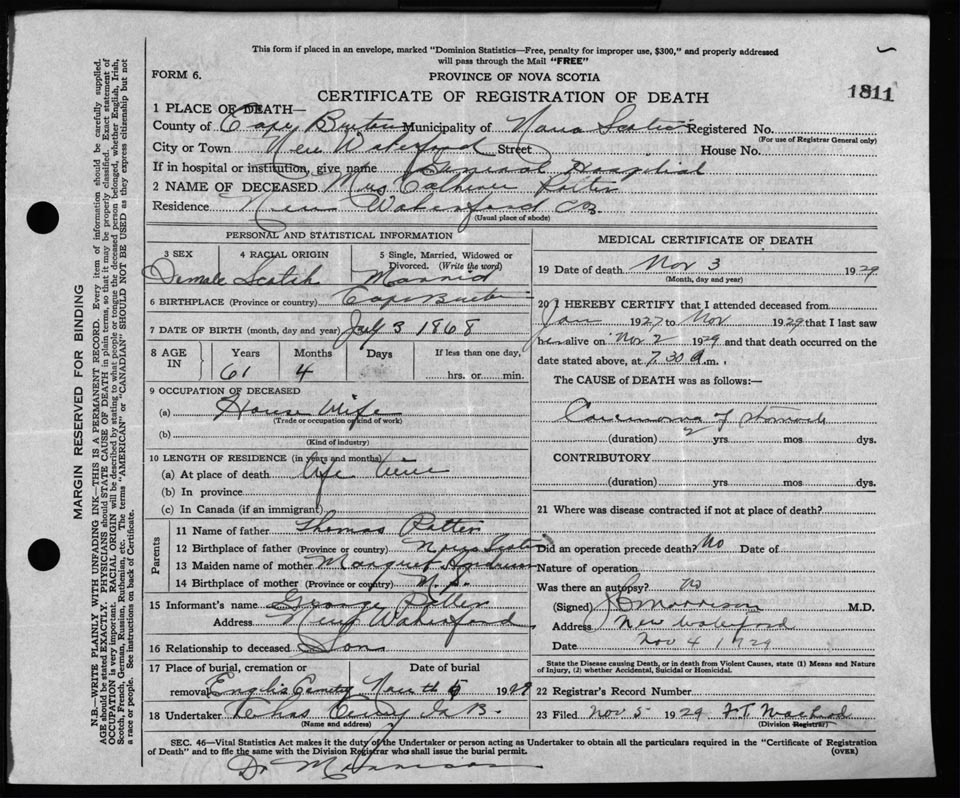 This form if placed in an envelope, marked "Dominion Statistics—Free, penalty for improper use, $300," and properly addressed
will pass through the Mail "FREE"
FORM 6.
PROVINCE OF NOVA SCOTIA
CERTIFICATE OF REGISTRATION OF DEATH
1811
1 PLACE OF DEATH—
County of Cape Breton Municipality of Nova Scotia Registered No.
(For use of Registrar General only)
City or Town New Waterford Street House No.
If in hospital or institution, give name General Hospital
2 NAME OF DECEASED Mrs Catherine
Residence New Waterford CB.
(Usual place of abode)
PERSONAL AND STATISTICAL INFORMATION
3 SEX 4 RACIAL ORIGIN 5 Single, Married, Widowed or Divorced. (Write the word)
Female Scotch Married
6 BIRTHPLACE (Province or country) Cape Breton
7 DATE OF BIRTH (month, day and year) 3 1868
8 AGE IN Years Months Days If less than one day,
61 4 hrs. or min.
9 OCCUPATION OF DECEASED
(a) House Wife
(Trade or occupation or kind of work)
(b)
(Kind of industry)
10 LENGTH OF RESIDENCE (in years and months)
(a) At place of death Life time
(b) In province
(c) In Canada (if an immigrant)
Parents
11 Name of father Thomas
12 Birthplace of father (Province or country) Nova Scotia
13 Maiden name of mother
14 Birthplace of mother (Province or country) N.S.
15 Informant's name George
Address New Waterford
16 Relationship to deceased Son
17 Place of burial, cremation or removal Date of burial
5 1929
18 Undertaker
(Name and address)
MEDICAL CERTIFICATE OF DEATH
19 Date of death Nov 3 1929
(Month, day and year)
20 I HEREBY CERTIFY that I attended deceased from
Jan 1927 to Nov 1929 that I last saw
h alive on Nov 2 1929 and that death occurred on the
date stated above, at 7.30 a.m.
The CAUSE of DEATH was as follows:—
Carcinoma of stomach
(duration) 2 yrs mos dys.
CONTRIBUTORY
(duration) yrs mos dys.
21 Where was disease contracted if not at place of death?
Did an operation precede death? No Date of
Nature of operation
Was there an autopsy? no
(Signed) Morrison M.D.
Address New Waterford
Date Nov 4 1929
State the Disease causing Death, or in death from Violent Causes, state (1) Means and Nature
of Injury, (2) whether Accidental, Suicidal or Homicidal.
22 Registrar's Record Number
23 Filed Nov 5 1929
(Division Registrar)
SEC. 46—Vital Statistics Act makes it the duty of the Undertaker or person acting as Undertaker to obtain all the particulars required in the "Certificate of Registration
of Death" and to file the same with the Division Registrar who shall issue the burial permit.
(OVER)
Dr Morrison
MARGIN RESERVED FOR BINDING
N.B.—WRITE PLAINLY WITH UNFADING INK—THIS IS A PERMANENT RECORD. Every item of information should be carefully supplied.
AGE should be stated EXACTLY. PHYSICIANS should STATE CAUSE OF DEATH in plain terms, so that it may be properly classified. Exact statement of
OCCUPATION is very important. RACIAL ORIGIN will be described by stating to what people or tongue the deceased person belonged, whether English, Irish,
Scotch, French, German, Russian, Ruthenian, etc. The terms "AMERICAN" or "CANADIAN" SHOULD NOT BE USED as they express citizenship but not
a race or people. See instructions on back of Certificate.